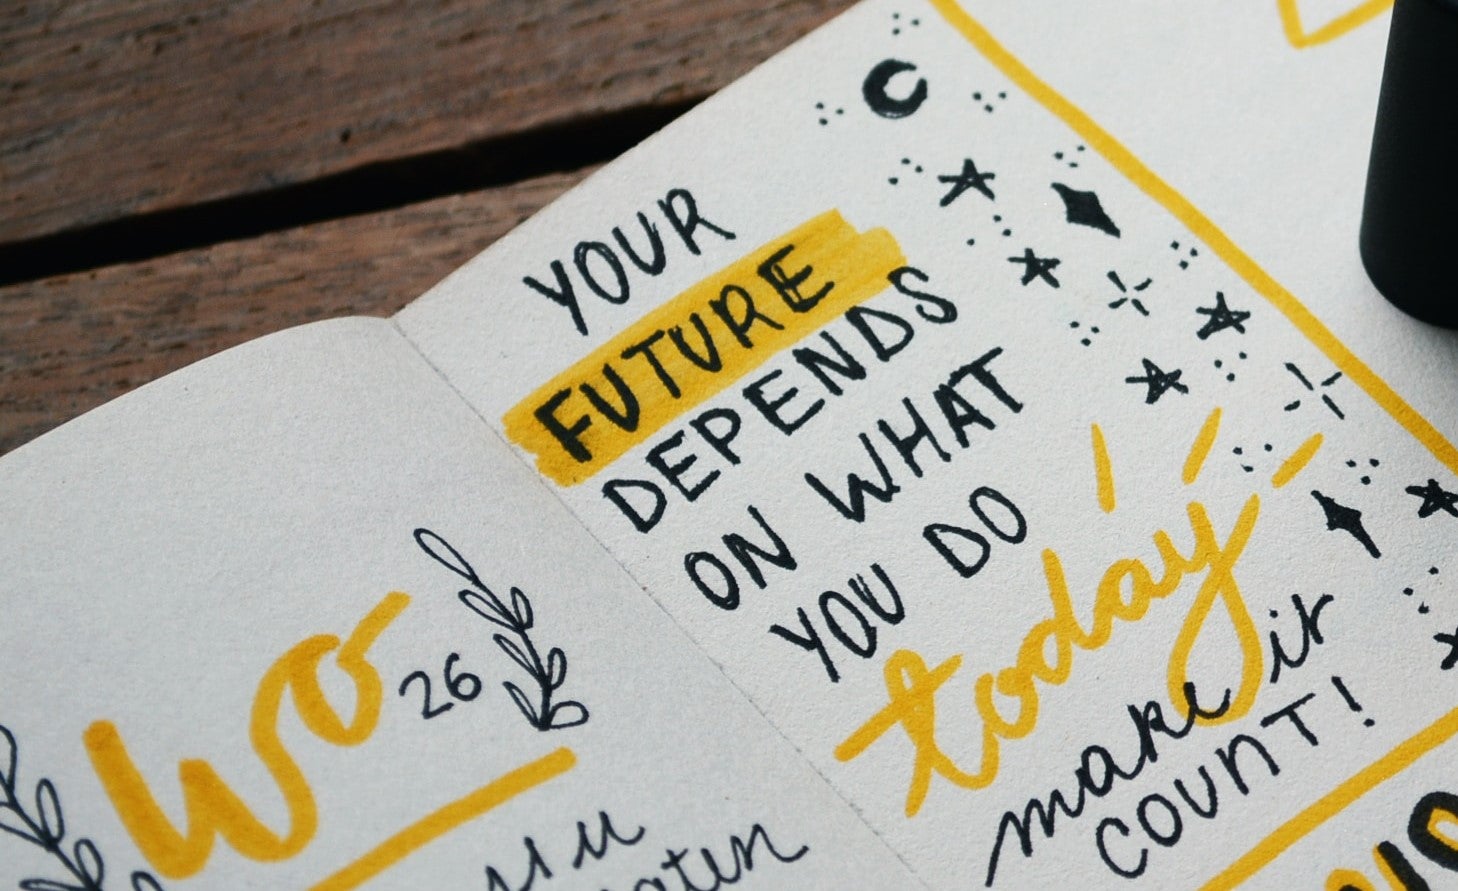 YOUR
FUTURE
DEPENDS
ON WHAT
YOU DO
today
make it
COUNT!
Wo
26